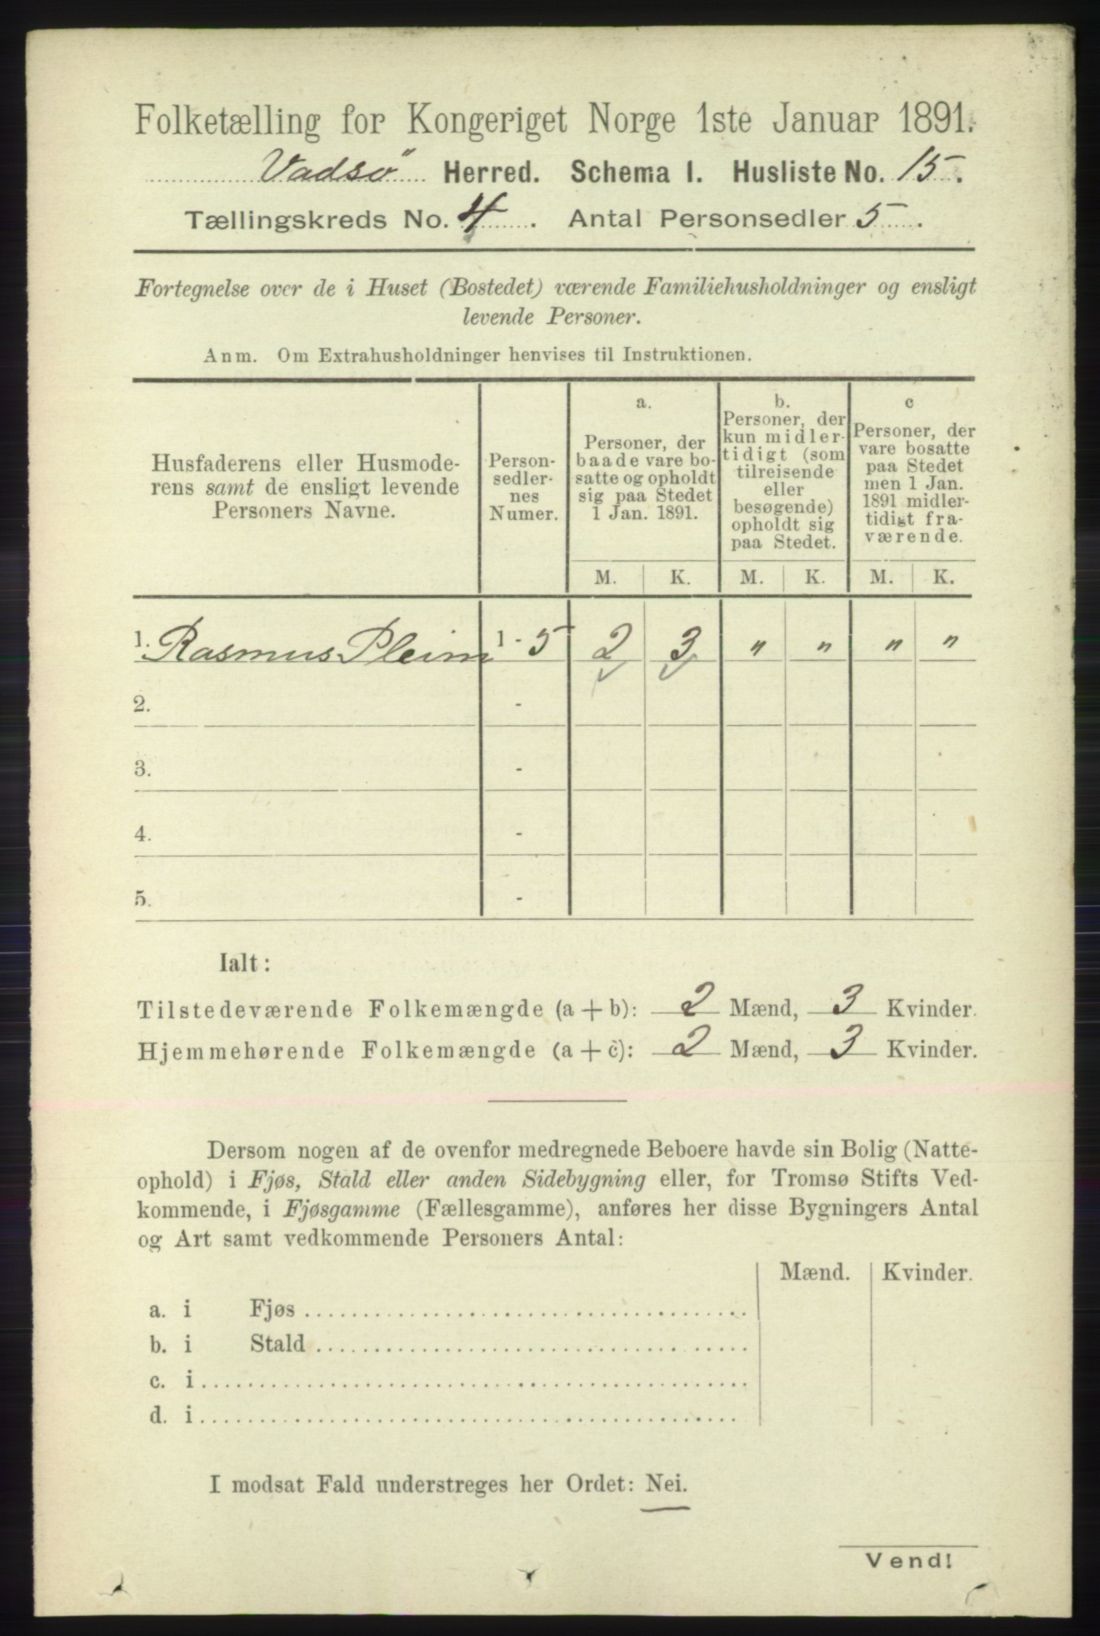 Folketælling for Kongeriget Norge 1ste Januar 1891.
Vadsø Herred. Schema I. Husliste No. 15.
Tællingskreds No. 4. Antal Personsedler 5.
Fortegnelse over de i Huset (Bostedet) værende Familiehusholdninger og ensligt
levende Personer.
Anm. Om Extrahusholdninger henvises til Instruktionen.
Husfaderens eller Husmode-
rens samt de ensligt levende
Personers Navne.
Person-
sedler-
nes
Numer.
a.
Personer, der
baade vare bo-
satte og opholdt
sig paa Stedet
1 Jan. 1891.
b.
Personer, der
kun midler-
tidigt (som
tilreisende
eller
besøgende)
opholdt sig
paa Stedet.
c
Personer, der
vare bosatte
paa Stedet
men 1 Jan.
1891 midler-
tidigt fra-
værende.
M. K. M. K. M. K.
1. Rasmus Pleim 1 - 5 2 3 " " " "
2. -
3. -
4. -
5. -
Ialt:
Tilstedeværende Folkemængde (a + b): 2 Mænd, 3 Kvinder.
Hjemmehørende Folkemængde (a + c): 2 Mænd, 3 Kvinder.
Dersom nogen af de ovenfor medregnede Beboere havde sin Bolig (Natte-
ophold) i Fjøs, Stald eller anden Sidebygning eller, for Tromsø Stifts Ved-
kommende, i Fjøsgamme (Fællesgamme), anføres her disse Bygningers Antal
og Art samt vedkommende Personers Antal:
Mænd. Kvinder.
a. i Fjøs
b. i Stald
c. i
d. i
I modsat Fald understreges her Ordet: Nei.
Vend!